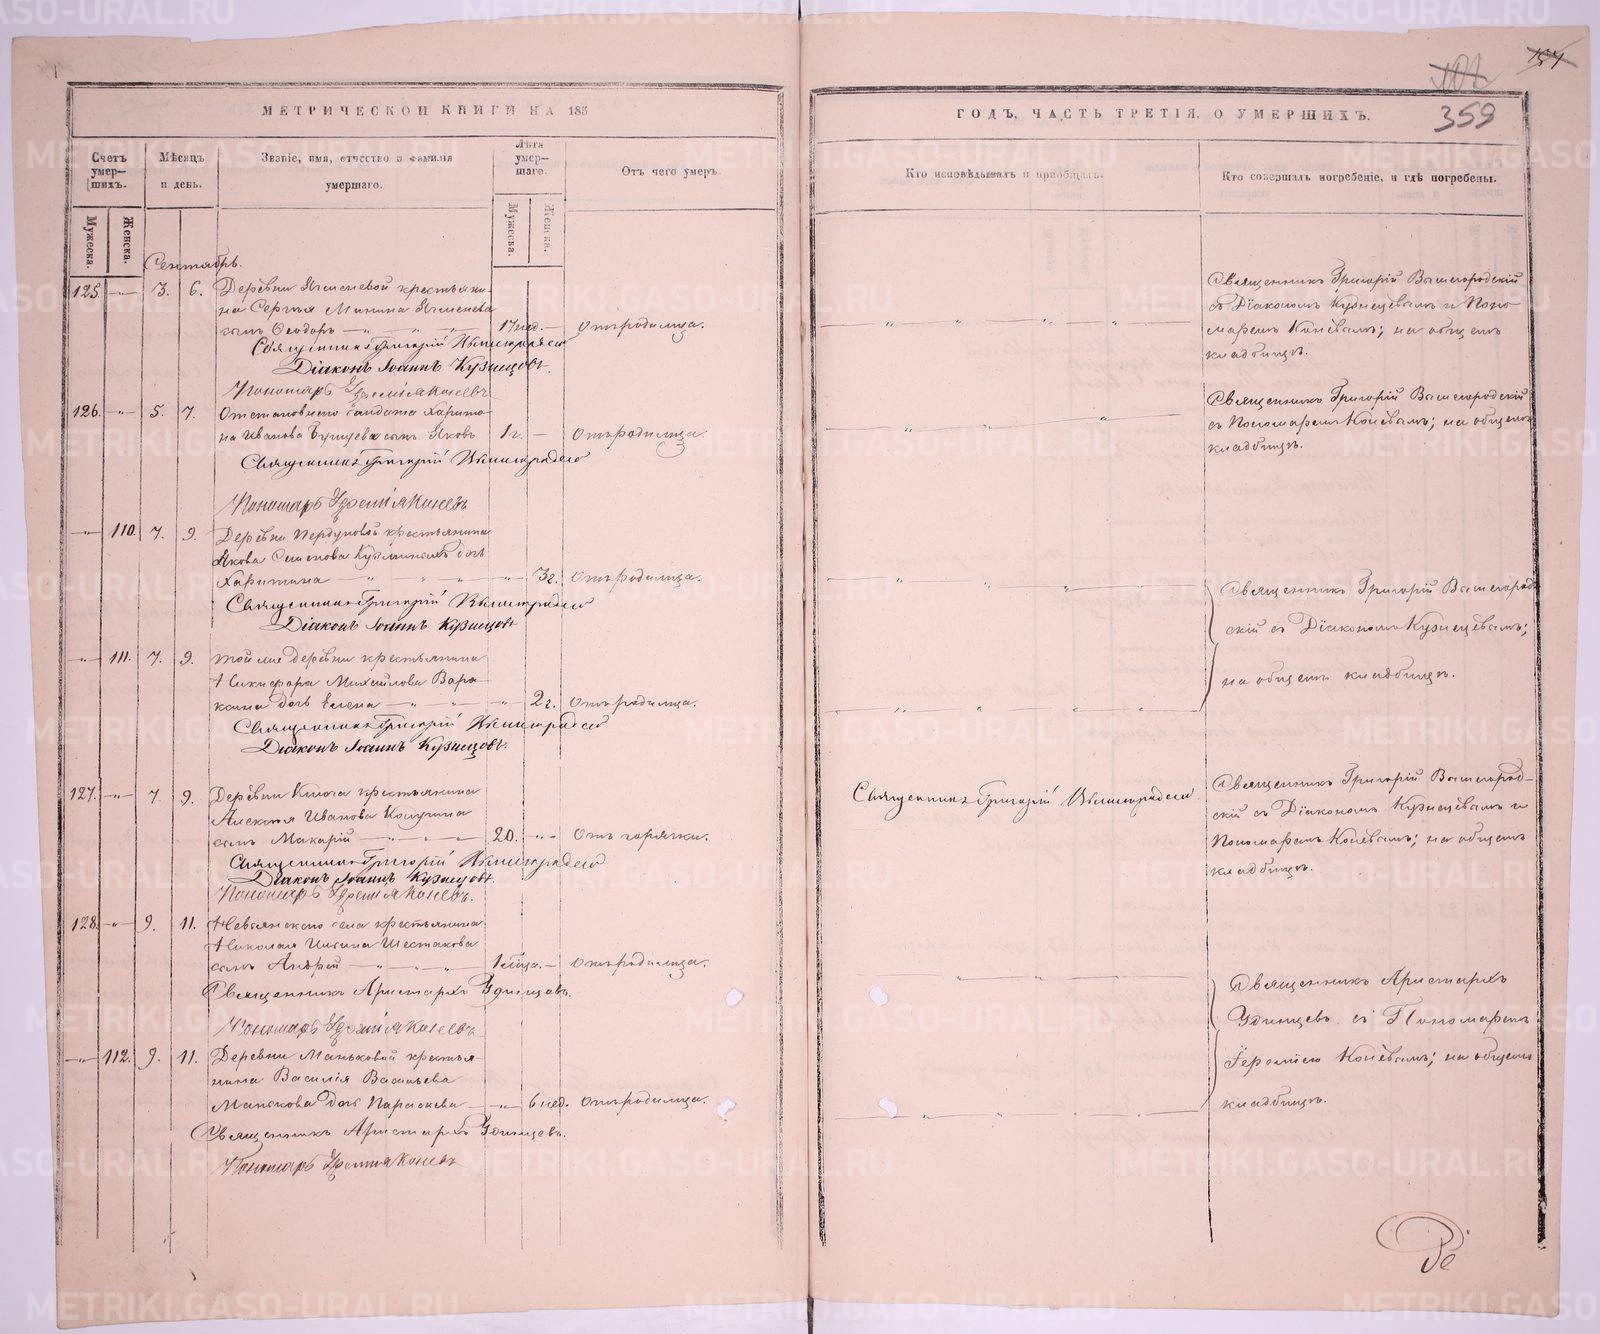 МЕТРИЧЕСКОЙ КНИГИ НА 185
Счетъ умер— шихъ.
Мѣсяцъ и день.
Званіе, имя, отчество и фамилія умершаго.
Лѣта умер— шаго.
Отъ чего умеръ.
Мужеска.
Женска.
Мужеска.
Женска.
Сентябрь.
125. —„— 3. 6. Деревни крестьяни-
на Сергѣя Минина
сынъ Ѳеодоръ —„— „ — „— 17 нед. — Отъ родимца.
Священникъ Григорій
Діаконъ Іоаннъ Кузнецовъ.
Пономарь Іеремія Коневъ
126. —„— 5. 7. Отставнаго солдата Харито-
на Иванова сынъ Яковъ 1 г. — Отъ родимца.
Священникъ Григорій
Пономарь Іеремія Коневъ
—„— 110. 7. 9. Деревни крестьянина
Якова Семенова дочь
Харитина —„ „ — „— —„— 3 г. Отъ родимца.
Священникъ Григорій
Діаконъ Іоаннъ Кузнецовъ
—„— 111. 7. 9. Той же деревни крестьянина
Никифора Михайлова Вара-
кина дочь Елена —„— „— —„— 2 г. Отъ родимца.
Священникъ Григорій
Діаконъ Іоаннъ Кузнецовъ.
127. —„— 7. 9. Деревни Ключа крестьянина
Алексѣя Иванова
сынъ Макарій —„— „— „— 20. —„— Отъ горячки.
Священникъ Григорій
Діаконъ Іоаннъ Кузнецовъ.
Пономарь Іеремія Коневъ.
128. —„— 9. 11. Невьянскаго села крестьянина
Николая Ильина Шестакова
сынъ Андрей —„— „— „— 1 мѣсца. — Отъ родимца.
Священникъ Аристархъ Удинцевъ.
Пономарь Іеремія Коневъ
—„— 112. 9. 11. Деревни Маньковой крестья-
нина Василія Васильева
Манькова дочь Параскева — —„— 6 нед. Отъ родимца.
Священникъ Аристархъ Удинцевъ.
Пономарь Іеремія Коневъ
ГОДЪ, ЧАСТЬ ТРЕТІЯ, О УМЕРШИХЪ.
157
359
Кто исповѣдывалъ и пріобщалъ.
Кто совершалъ погребеніе, и гдѣ погребены.
Священникъ Григорій Вышегородскій
съ Діакономъ Кузнецовымъ и Поно-
маремъ Конёвымъ; на общемъ
кладбищѣ.
Священникъ Григорій Вышегородскій
съ Пономаремъ Конёвымъ; на общемъ
кладбищѣ.
Священникъ Григорій Вышегород-
скій съ Діакономъ Кузнецовымъ;
на общемъ кладбищѣ.
Священникъ Григорій
Священникъ Григорій Вышегород-
скій съ Діакономъ Кузнецовымъ и
Пономаремъ Конёвымъ; на общемъ
кладбищѣ.
Священникъ Аристархъ
Удинцевъ съ Пономаремъ
Іереміею Конёвымъ; на общемъ
кладбищѣ.
METRIKI.GASO-URAL.RU